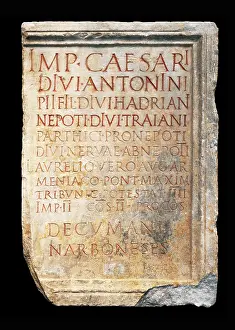 IMP·CAESARI
DIVI·ANTONINI
PII·FIL·DIVI·HADRIANI
NEPOTI·DIVI·TRAIANI
PARTHICI·PRONEPOTI
DIVI·NERVAE·ABNEPOTI
AVRELIO·VERO·AVG·AR
MENIACO·PONT·MAXIM
TRIBVNIC·POTESTAT·IIII
IMP·II COS·II
DECVMANI
NARBONESES